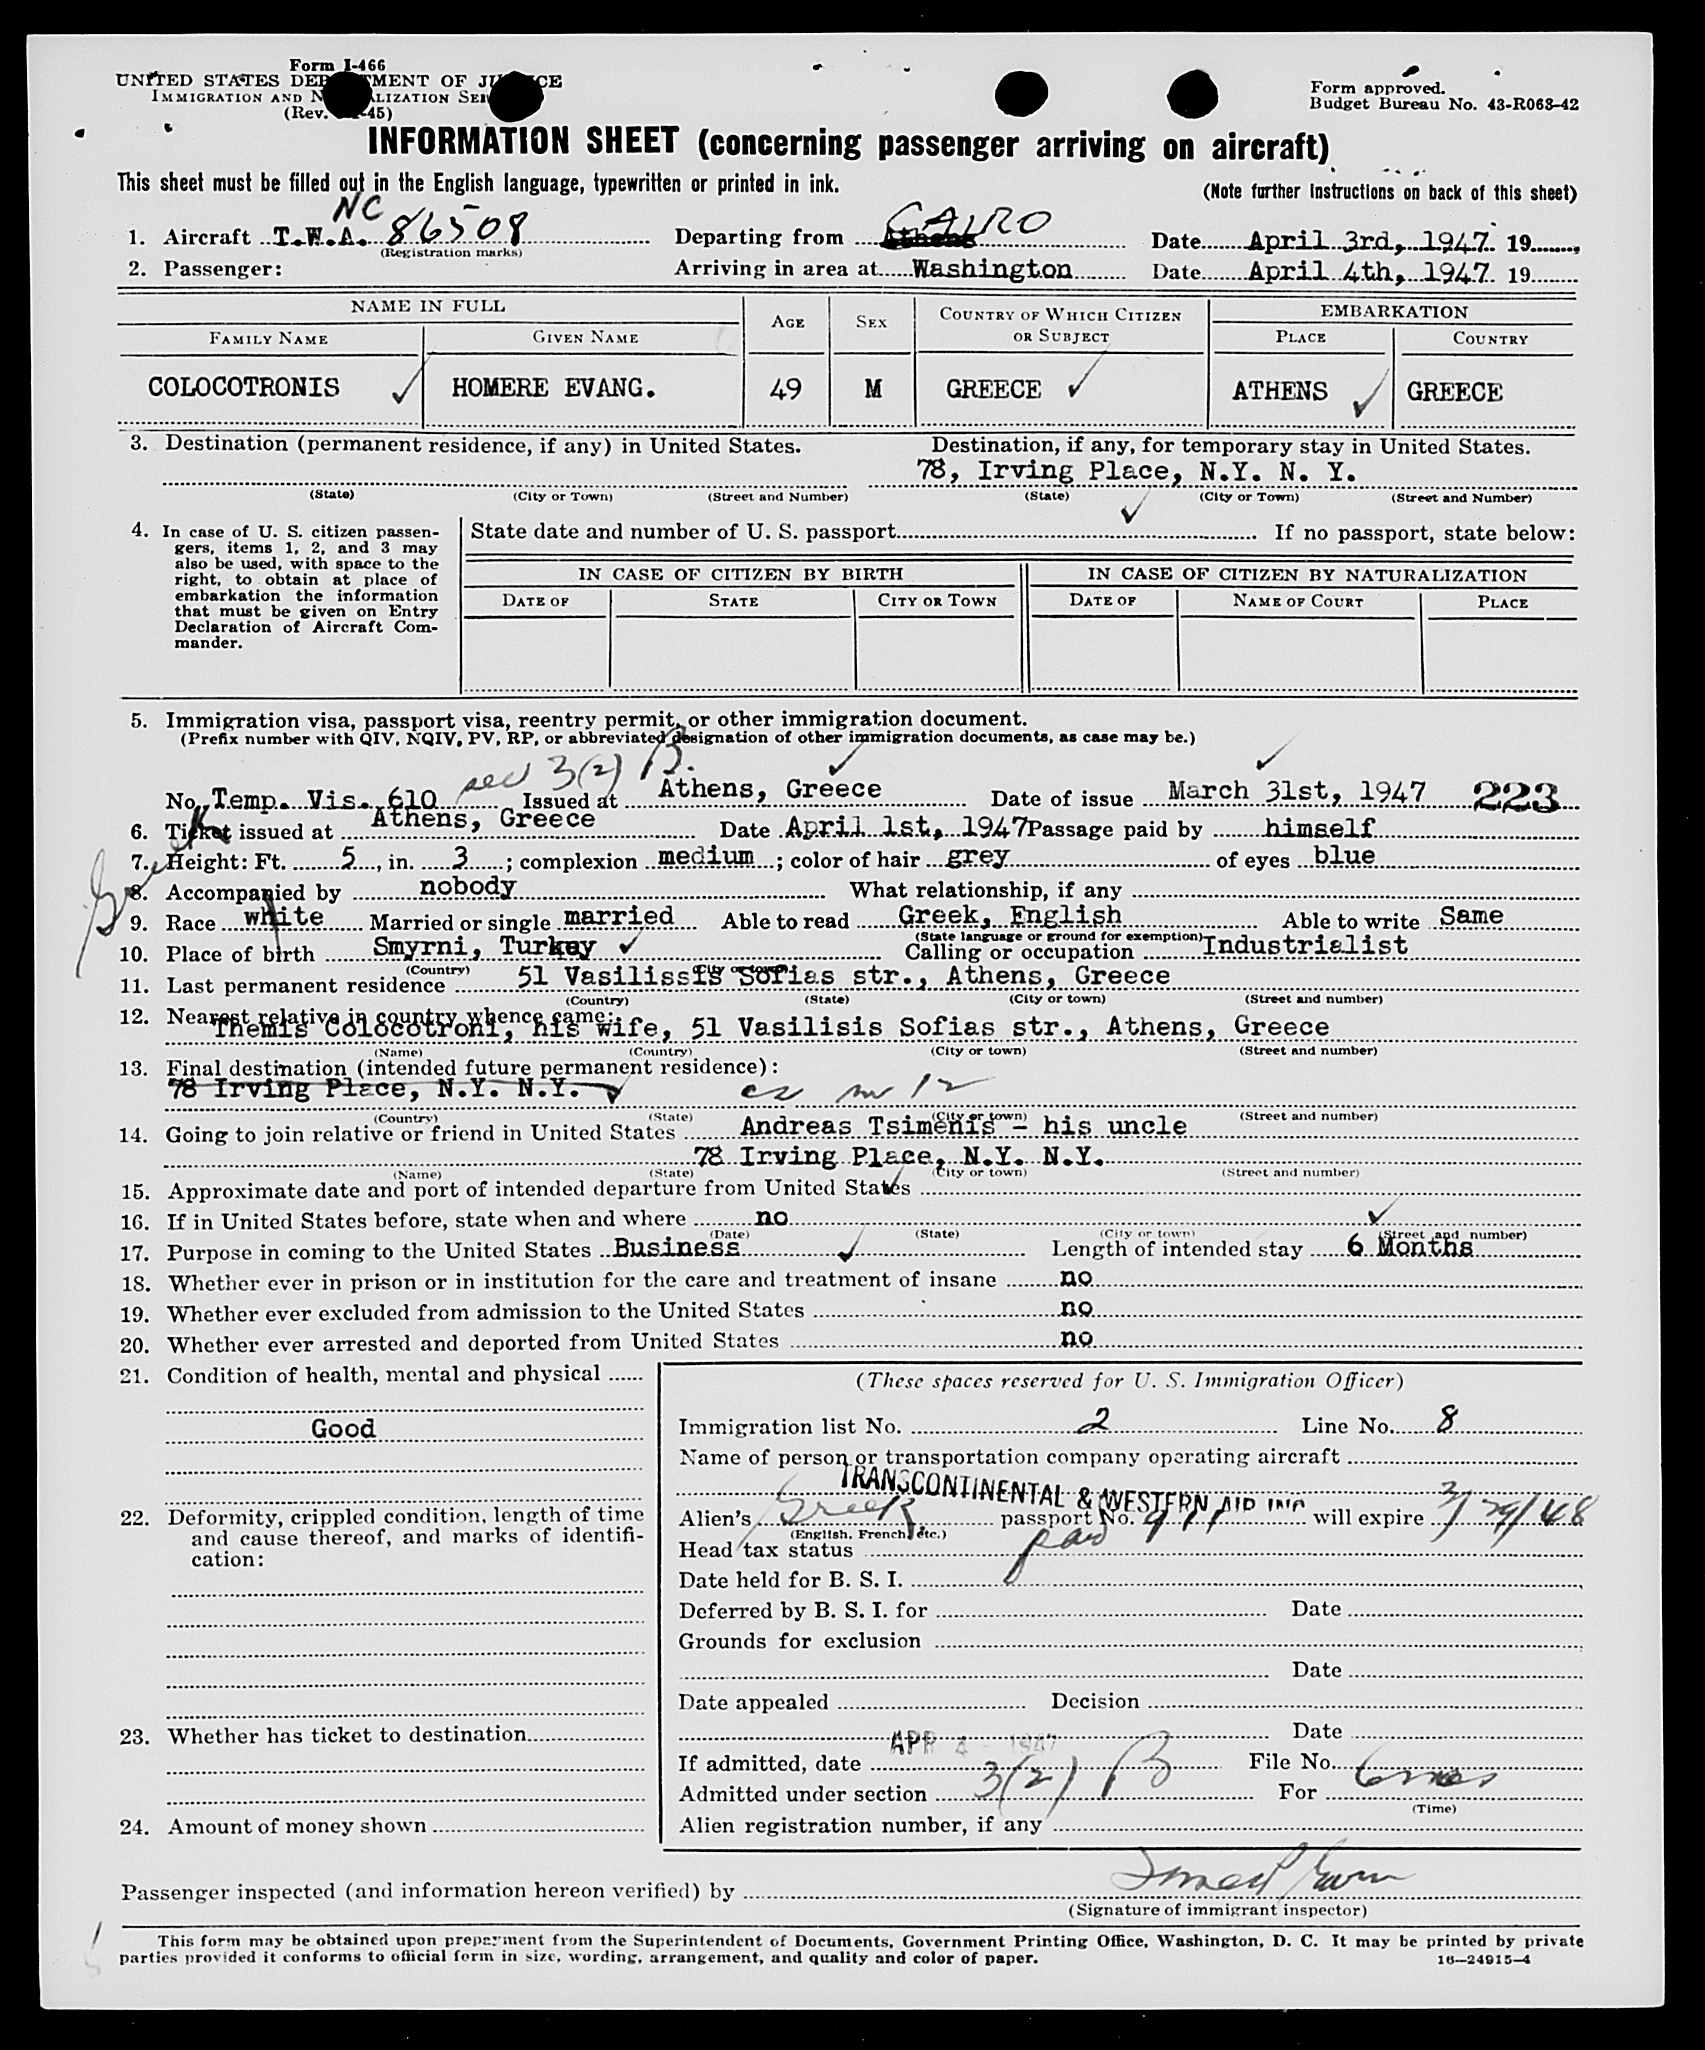 Form I-466
UNITED STATES DEPARTMENT OF JUSTICE
IMMIGRATION AND NATURALIZATION SERVICE
(Rev. -45)
Form approved.
Budget Bureau No. 43-R063-42
INFORMATION SHEET (concerning passenger arriving on aircraft)
This sheet must be filled out in the English language, typewritten or printed in ink.
(Note further instructions on back of this sheet)
1. Aircraft T.W.A. NC 86508 Departing from Athens CAIRO Date April 3rd, 1947 19
(Registration marks)
2. Passenger: Arriving in area at Washington Date April 4th, 1947 19
NAME IN FULL AGE SEX COUNTRY OF WHICH CITIZEN OR SUBJECT EMBARKATION
FAMILY NAME GIVEN NAME PLACE COUNTRY
COLOCOTRONIS HOMERE EVANG. 49 M GREECE ATHENS GREECE
3. Destination (permanent residence, if any) in United States. Destination, if any, for temporary stay in United States.
78, Irving Place, N.Y. N. Y.
(State) (City or Town) (Street and Number) (State) (City or Town) (Street and Number)
4. In case of U. S. citizen passen-
gers, items 1, 2, and 3 may
also be used, with space to the
right, to obtain at place of
embarkation the information
that must be given on Entry
Declaration of Aircraft Com-
mander.
State date and number of U. S. passport If no passport, state below:
IN CASE OF CITIZEN BY BIRTH IN CASE OF CITIZEN BY NATURALIZATION
DATE OF STATE CITY OR TOWN DATE OF NAME OF COURT PLACE
5. Immigration visa, passport visa, reentry permit, or other immigration document.
(Prefix number with QIV, NQIV, PV, RP, or abbreviated designation of other immigration documents, as case may be.)
sec 3(2) B.
No. Temp. Vis. 610 Issued at Athens, Greece Date of issue March 31st, 1947 223
6. Ticket issued at Athens, Greece Date April 1st, 1947 Passage paid by himself
7. Height: Ft. 5, in. 3; complexion medium; color of hair grey of eyes blue
Greek
8. Accompanied by nobody What relationship, if any
9. Race white Married or single married Able to read Greek, English Able to write Same
(State language or ground for exemption)
10. Place of birth Smyrni, Turkey Calling or occupation Industrialist
(Country) (City or town)
11. Last permanent residence 51 Vasilissis Sofias str., Athens, Greece
(Country) (State) (City or town) (Street and number)
12. Nearest relative in country whence came:
Themis Colocotroni, his wife, 51 Vasilisis Sofias str., Athens, Greece
(Name) (Country) (City or town) (Street and number)
13. Final destination (intended future permanent residence):
78 Irving Place, N.Y. N.Y. 12
(Country) (State) (City or town) (Street and number)
14. Going to join relative or friend in United States Andreas Tsimenis - his uncle
78 Irving Place, N.Y. N.Y.
(Name) (State) (City or town) (Street and number)
15. Approximate date and port of intended departure from United States
16. If in United States before, state when and where no
(Date) (State) (City or town) (Street and number)
17. Purpose in coming to the United States Business Length of intended stay 6 Months
18. Whether ever in prison or in institution for the care and treatment of insane no
19. Whether ever excluded from admission to the United States no
20. Whether ever arrested and deported from United States no
21. Condition of health, mental and physical
Good
22. Deformity, crippled condition, length of time
and cause thereof, and marks of identifi-
cation:
23. Whether has ticket to destination
24. Amount of money shown
(These spaces reserved for U. S. Immigration Officer)
Immigration list No. 2 Line No. 8
Name of person or transportation company operating aircraft
TRANSCONTINENTAL & WESTERN AIR INC
Alien's Greek passport No. 977 will expire 3/29/48
(English, French, etc.)
Head tax status paid
Date held for B. S. I.
Deferred by B. S. I. for Date
Grounds for exclusion
Date
Date appealed Decision
Date
If admitted, date APR 4 - 1947 File No.
Admitted under section 3(2) B For 6 mos
(Time)
Alien registration number, if any
Passenger inspected (and information hereon verified) by
(Signature of immigrant inspector)
This form may be obtained upon prepayment from the Superintendent of Documents, Government Printing Office, Washington, D. C. It may be printed by private
parties provided it conforms to official form in size, wording, arrangement, and quality and color of paper. 16—24915-4